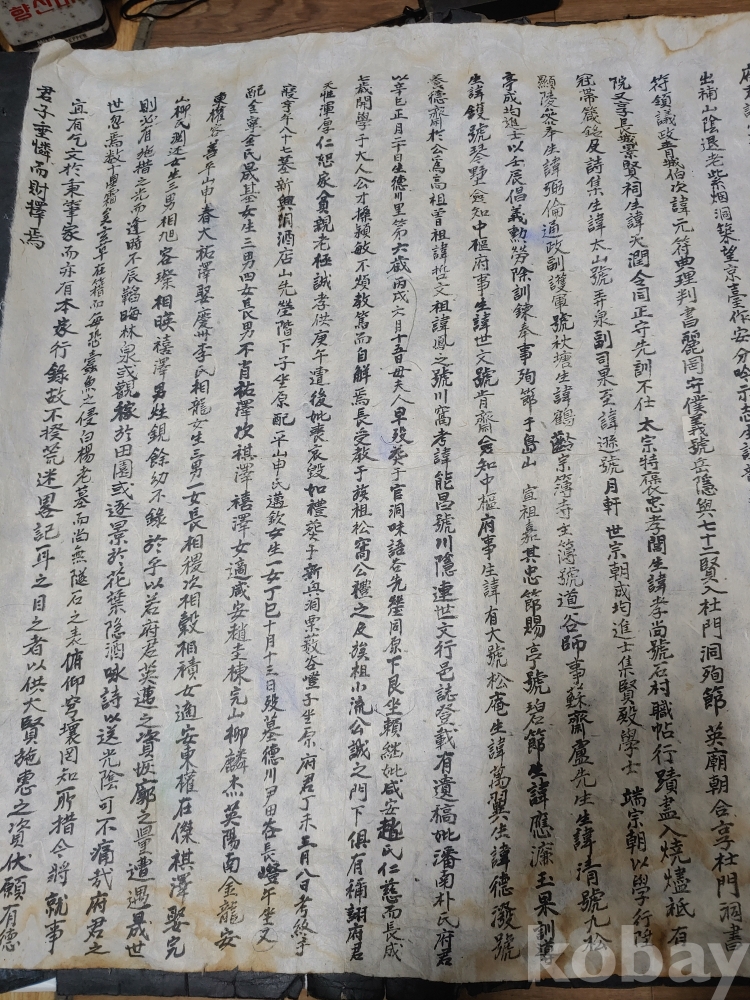 府君諱
出補山陰退老紫烟洞築望京臺作安分吟示志
符領議政青城伯次諱元符典理判書麗罔守僕義號兵隱與七十二賢入杜門洞殉節 英廟朝合享杜門洞書
院又享長 賢祠生諱火潤令同正守先訓不仕 太宗特褒忠孝閭生諱孝尚號石村職帖行蹟盡入燒燼祗有
冠帶箴銘及詩集生諱太山號弄泉副司果至諱遜號月軒 世宗朝成均進士集賢殿學士 端宗朝以學行陞
顯陵參奉生諱弼倫通政副護軍號秋塘生諱鶴齡宗簿寺主簿號道谷師事蘇齋盧先生生諱清號九松
亭成均進士以壬辰倡義勳勞除訓鍊奉事殉節于島山 宣祖嘉其忠節賜亭號珀節生諱應濂玉果訓導
生諱鍑號琴野僉知中樞府事生諱世文號肯齋僉知中樞府事生諱有大號松庵生諱萬翼生諱德潑號
養德齋於公爲高祖曾祖諱哲文祖諱鳳之號川窩考諱能昌號川隱連世文行邑誌登載有遺稿妣潘南朴氏府君
以辛巳正月二十日生德川里第六歲丙戌六月十五日母夫人早歿葬于官洞味語谷先塋同原下艮坐賴繼妣咸安趙氏仁慈而長成
七歲開學于大人公才操穎敏不煩教篤而自解焉長受教于族祖松窩公禮之及族祖小流公誠之門下俱有稱詡府君
天性渾厚仁恕家貧親老極誠孝供庚午遭後妣喪哀毀如禮葬于新興洞栗藪谷嶝子坐原府君丁未三月八日考終于
寢享年八十七墓新興洞酒店山先塋階下子坐原配平山申氏邁欽女生一女丁巳十月十三日歿墓德川尹田谷長嶝午坐又
配金寧金氏晟基女生三男四女長男不肖祐澤次祺澤禧澤女適咸安趙圭棟完山柳麟杰英陽南金龍安
東權容善平申春大祐澤娶慶州李氏相龍女生三男一女長相稷次相穀相積女適安東權在傑祺澤娶完
山柳氏淵述女生三男相旭 客 相暎禧澤男姓鋧餘幼不錄於乎以若府君英邁之資恢廓之量遭遇晟世
則必有施措之光而逢時不辰韜晦林泉或觀稼於田園或逐景於花葉隱酒咏詩以送光陰可不痛哉府君之
世忽焉數十星霜至 在箱而每恐蠹魚之侵白楊老墓而尚無隧石之表俯仰穹壤罔知所措今將就事
宜有乞文於秉筆家而亦有本家行錄故不揆荒迷畧記耳之目之者以供大賢施惠之資伏願有德
君子垂憐而財擇焉
kobay